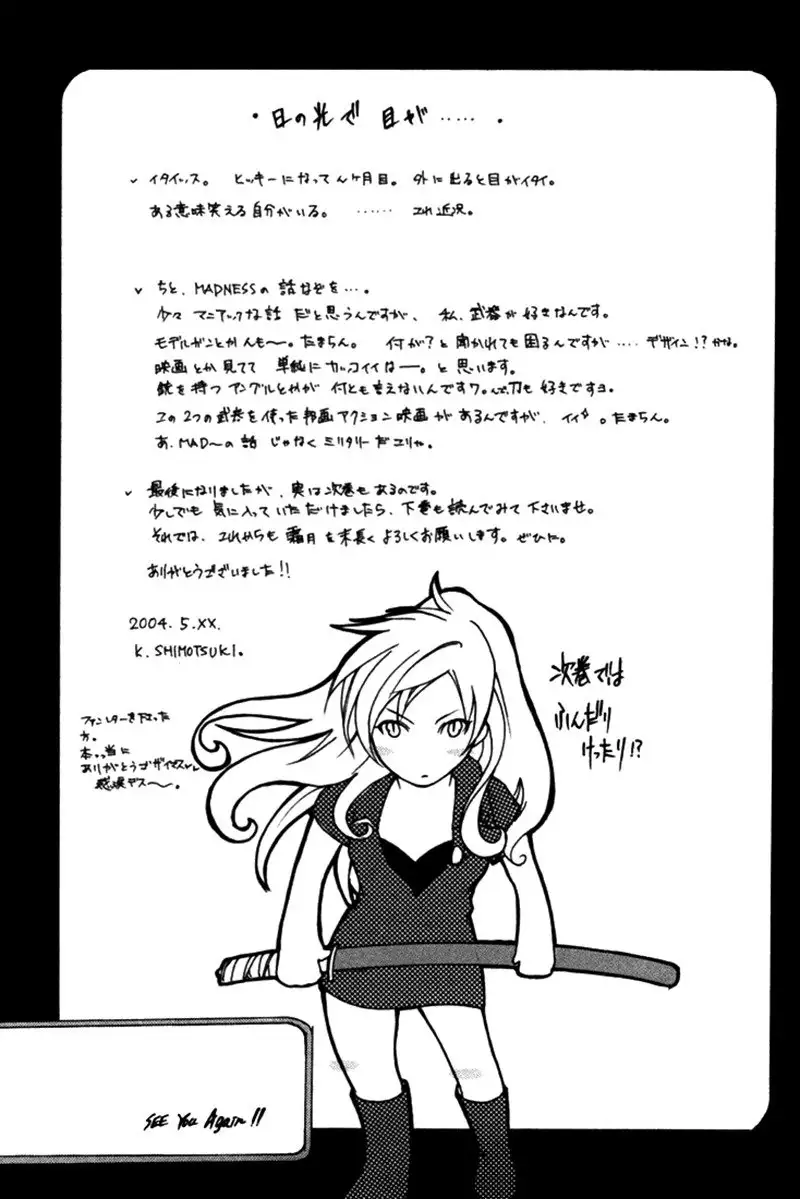 ・日の光で 目が……・
✓ イタイッス。 ヒッキーになって ヶ月目。 外に出ると目がイタイ。
ある意味笑える自分がいる。 …… これ近況。
✓ ちと、MADNESSの 話などを…。
少々 マニアックな話 だと思うんですが、 私、武器が好きなんです。
モデルガンとかんも〜。たまらん。 何が?と聞かれても困るんですが…. デザイン!?かな。
映画とか見てて 単純にカッコイイなー。と思います。
銃を持つ アングルとかが 何とも言えないんですワ。んで刀も好きですヨ。
この2つの武器を使った邦画アクション映画があるんですが、イイ。たまらん。
あ、MAD〜の話 じゃなくミリタリーだコリャ。
✓ 最後になりましたが、実は次巻もあるのです。
少しでも気に入っていただけましたら、下巻も読んでみて下さいませ。
それでは、これからも 霜月を末長くよろしくお願いします。ぜひに。
ありがとうございました!!
2004. 5.XX.
K. SHIMOTSUKI.
ファンレターを下さった
方。
本っ当に
ありがとうゴザイマス
感涙デス〜。
次巻では
ふんだり
けったり!?
SEE You Again!!